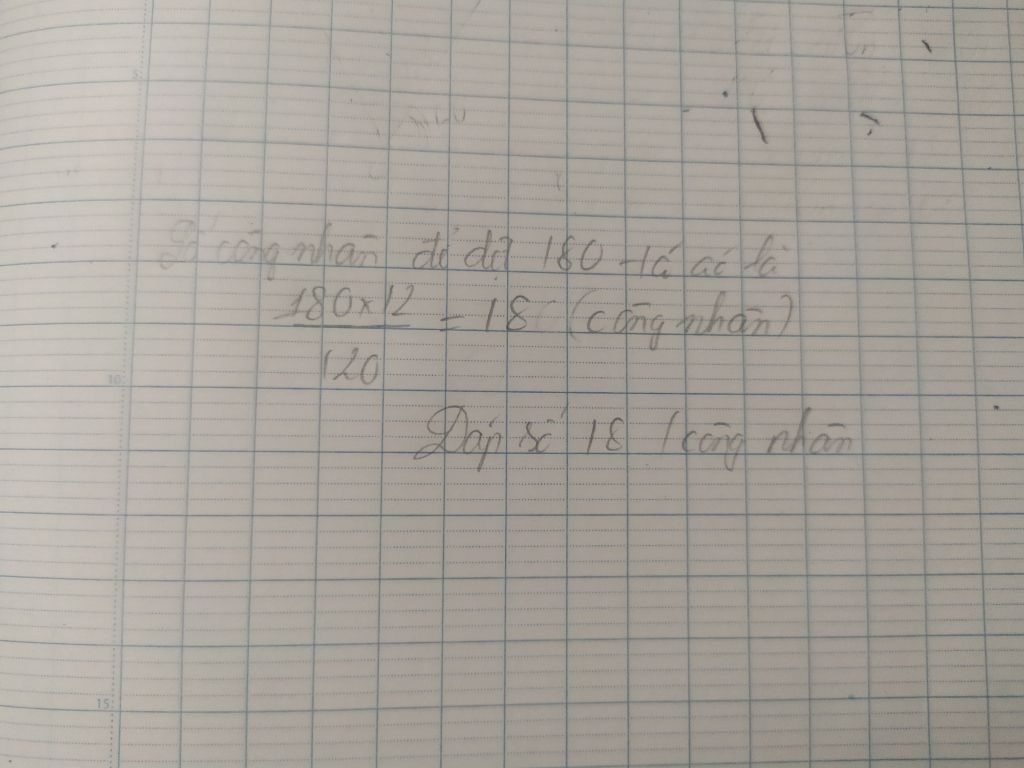 Số công nhân để dệt 180 tá áo là
180 x 12
120
= 18 (công nhân)
Đáp số 18 (công nhân